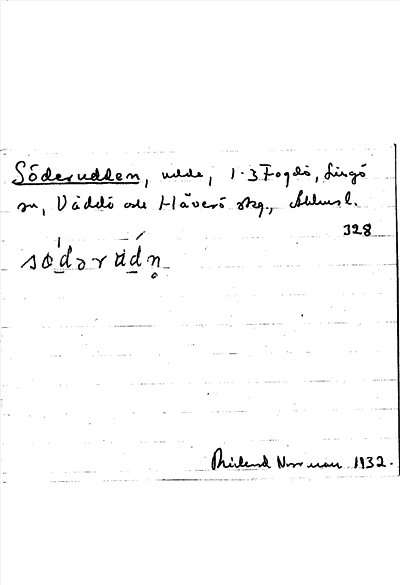 Söderudden, udde, 1-3 Fogdö, Singö
sn, Väddö och Häverö skg., Sthms l.
328
södərʉdn̥
Norman 1932.